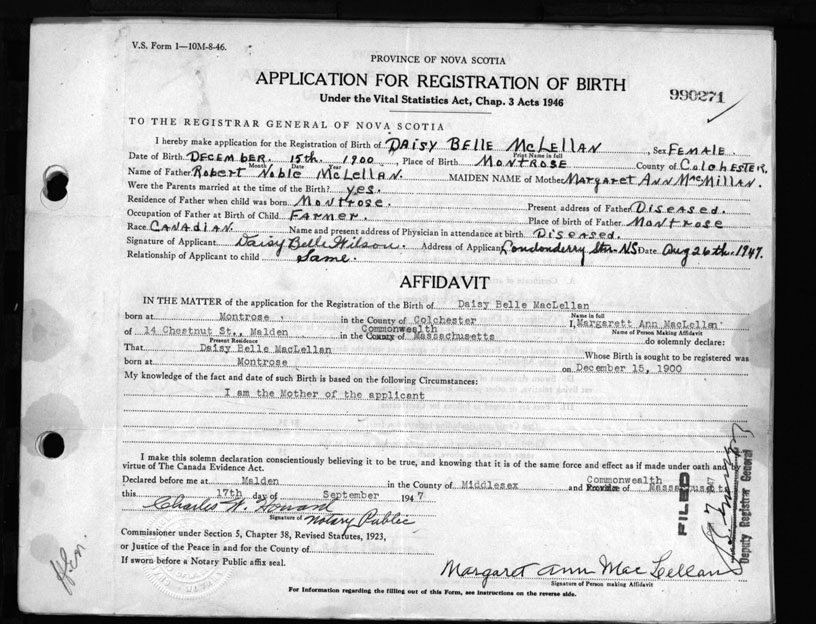 V.S. Form 1—10M-8-46.
PROVINCE OF NOVA SCOTIA
APPLICATION FOR REGISTRATION OF BIRTH
Under the Vital Statistics Act, Chap. 3 Acts 1946
990271
TO THE REGISTRAR GENERAL OF NOVA SCOTIA
I hereby make application for the Registration of Birth of DAISY BELLE McLELLAN, Sex FEMALE.
Print Name in full
Date of Birth DECEMBER. 15th. 1900, Place of Birth MONTROSE County of COLCHESTER.
Month Date Year
Name of Father Robert Noble McLELLAN. MAIDEN NAME of Mother MARGARET ANN MacMILLAN.
Were the Parents married at time of the Birth? yes.
Residence of Father when child was born MONTROSE. Present address of Father DISEASED.
Occupation of Father at Birth of Child FARMER. Place of birth of Father MONTROSE
Race CANADIAN. Name and present address of Physician in attendance at birth DISEASED.
Signature of Applicant Daisy Belle Wilson. Address of Applicant Londonderry Stn. NS Date Aug 26th. 1947.
Relationship of Applicant to child Same.
AFFIDAVIT
IN THE MATTER of the application for the Registration of the Birth of Daisy Belle MacLellan
Name in full
born at Montrose in the County of Colchester I, Margarett Ann MacLellan
Name of Person Making Affidavit
of 14 Chestnut St., Malden in the County Commonwealth of Massachusetts do solemnly declare:
Present Residence
That Daisy Belle MacLellan Whose Birth is sought to be registered was
born at Montrose on December 15, 1900
My knowledge of the fact and date of such Birth is based on the following Circumstances:
I am the Mother of the applicant
I make this solemn declaration conscientiously believing it to be true, and knowing that it is of the same force and effect as if made under oath and by
virtue of The Canada Evidence Act.
Declared before me at Malden in the County of Middlesex and Province Commonwealth of Massachusetts
this 17th day of September 1947
Charles W. Howard
Signature of Notary Public
Commissioner under Section 5, Chapter 38, Revised Statutes, 1923,
or Justice of the Peace in and for the County of
If sworn before a Notary Public affix seal.
Margaret Ann MacLellan
Signature of Person making Affidavit
For Information regarding the filling out of this Form, see instructions on the reverse side.
FILED
Deputy Registrar General